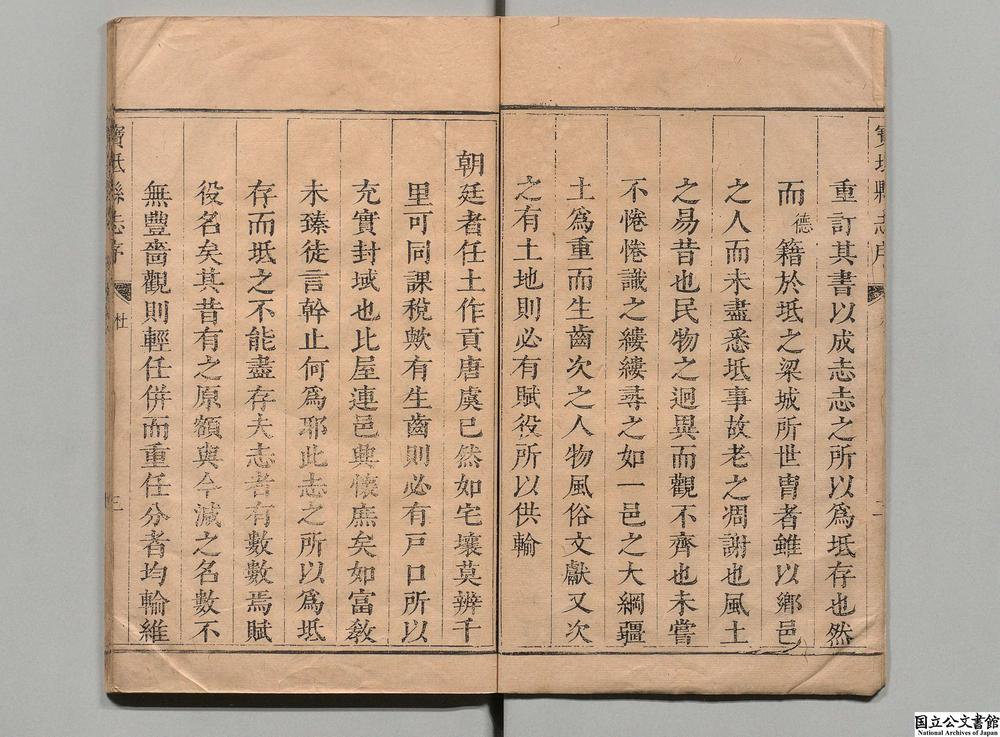 寶坻縣志序
二
重訂其書以成志志之所以爲坻存也然
而德籍於坻之梁城所世胄者雖以鄉邑
之人而未盡悉坻事故老之凋謝也風土
之易昔也民物之迥異而觀不齊也未嘗
不惓惓識之縷縷尋之如一邑之大綱疆
土爲重而生齒次之人物風俗文獻又次
之有土地則必有賦役所以供輸
朝廷者任土作貢唐虞已然如宅壤莫辨千
里可同課稅歟有生齒則必有戸口所以
充實封域也比屋連邑興懷庶矣如富敎
未臻徒言幹止何爲耶此志之所以爲坻
存而坻之不能盡存夫志者有數數焉賦
役名矣其昔有之原額與今減之名數不
無豐嗇觀則輕任併而重任分者均輸維
寶坻縣志序
杜
三
国立公文書館
National Archives of Japan